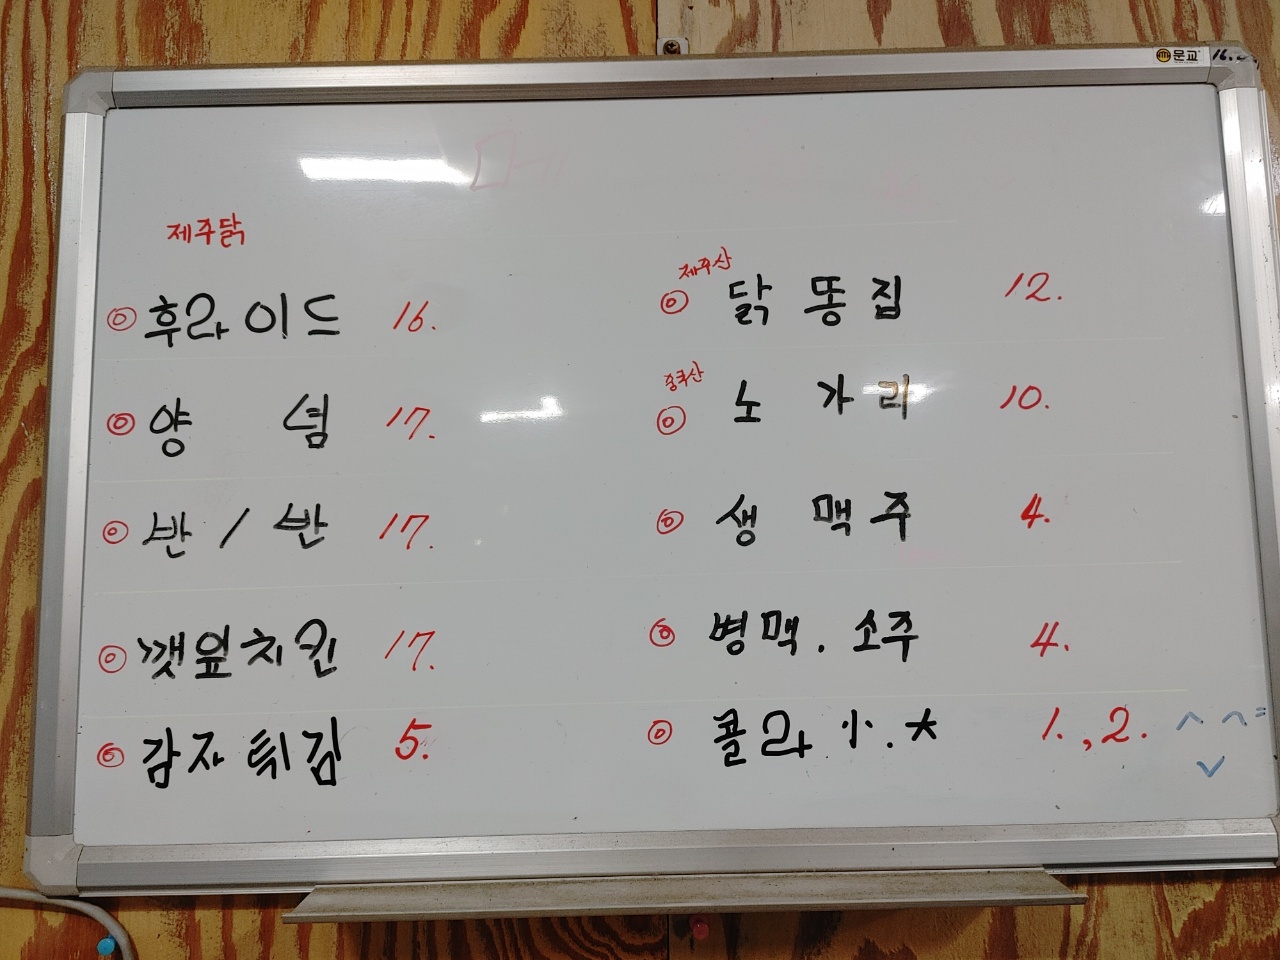 문교
제주닭
◎ 후라이드 16.
◎ 양 념 17.
◎ 반/반 17.
◎ 깻잎치킨 17.
◎ 감자튀김 5.
제주산
◎ 닭똥집 12.
중국산
◎ 노가리 10.
◎ 생맥주 4.
◎ 병맥.소주 4.
◎ 콜라 小.大 1.,2.